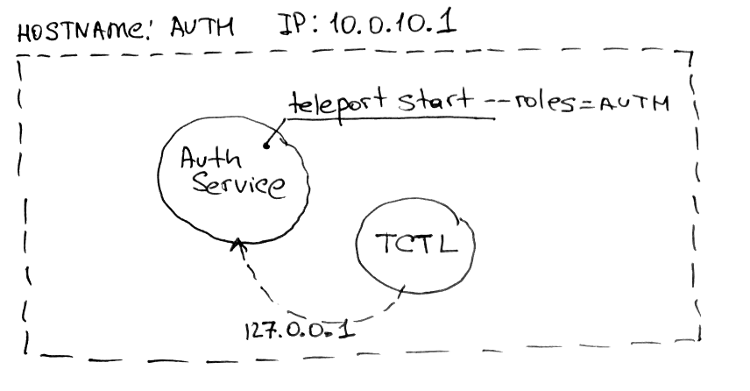 HOSTNAME: AUTH IP: 10.0.10.1
teleport start --roles=AUTH
Auth
Service
TCTL
127.0.0.1